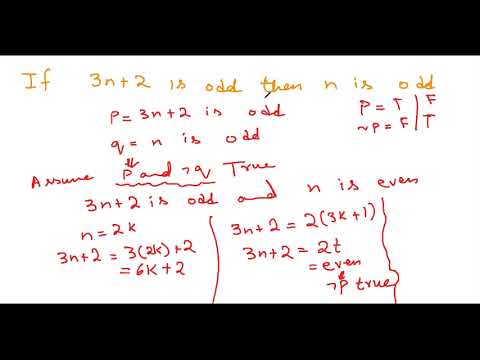 If 3n+2 is odd then n is odd
P = 3n+2 is odd
q = n is odd
P = T | F
~P = F | T
Assume P and ¬q True
3n+2 is odd and n is even
n = 2k
3n+2 = 3(2k)+2
= 6k+2
3n+2 = 2(3k+1)
3n+2 = 2t
= even
¬P true